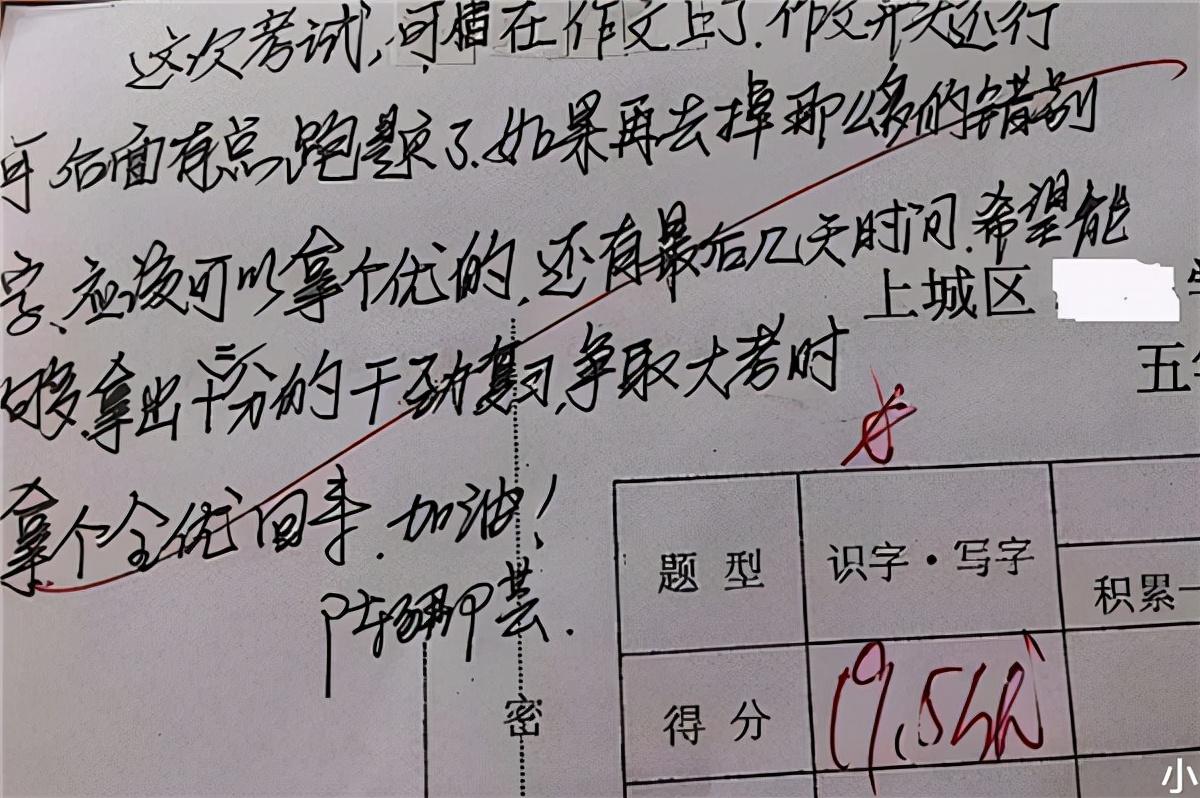 这次考试,可惜在作文上了.作文开头还行
可后面有点跑题了.如果再去掉那么多的错别
字、应该可以拿个优的,还有最后几天时间.希望能
够拿出十二分的干劲复习,争取大考时
拿个全优回来.加油!
上城区
五年
题 型
识字·写字
积累
得 分
密
小